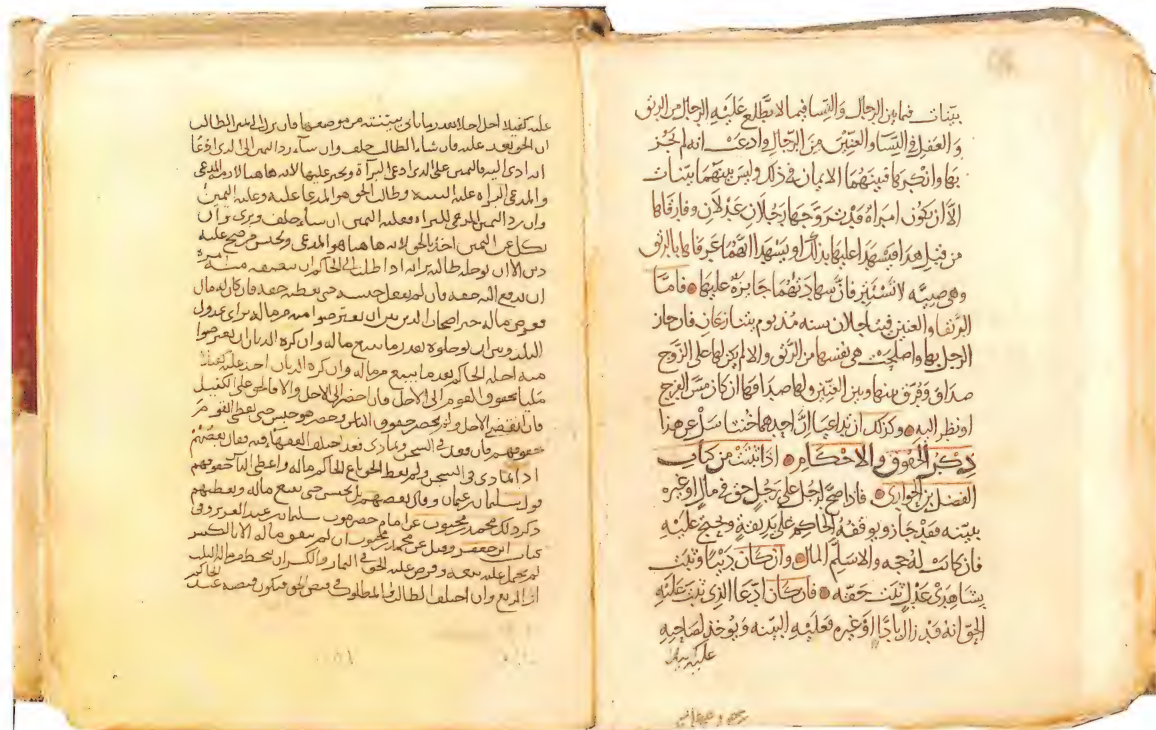 بينات فيما بين الرجال والنسا فيما لا يطلع عليه الرجال من الرتق
والعفل في النسا والعنين من الرجال وادعت انه لم يجز
بها وانكر كا فبينهما الايمان في ذلك وليس بينهما بينات
الا ان تكون امراة قد تزوجها رجلان عدلان وفارقاها
من قبل هذا فيشهدا عليها بذلك او يشهدا انهما عرفاها بالرتق
وهي صبيه لا تستتر فان شهادتهما جايزة عليها فاما
الرتقا والعنين فيؤجلان سنه مذ يوم يتنازعان فان جاز
الرجل بها واصلحت هي نفسها من الرتق والا لم يكن لها على الزوج
صداق وفرق بينها وبين العنين ولها صداقها ان كان مس الفرج
او نظر اليه وكذلك ان تداعيا ان احدهما خنثا سل عن هذا
ذكر الحقوق والاحكام اذا ثبتت من كتاب
الفضل بن الحواري فاذا صح لرجل على رجل حق في مال او غيره
ببينه فقد جاز ويوقفه الحاكم على بديفته ويحتج عليه
فان كانت له حجه والا سلم المال وان كان دينا وثبت
بشاهدي عدل ثبت حقه فان كان ادعا الذي ثبت عليه
الحق انه قد زال باداا او غيره فعليه البينه ويوخذ لصاحبه
عليه
عليه كفيلا اجل اجلا بقدر ما ياتي ببينته من موضعها فان نزل الى يمين الطالب
ان الحق بعد عليه فان شاء الطالب حلف وان شاء رد اليمين الى الذي ادعا
انه ادى اليه فاليمين على الذي ادعى البرآة ويجبر عليها لانه هاهنا لاو له المدعي
والمدعي البراه عليه البينه وطالب الحق هو المدعا عليه وعليه اليمين
وان رد اليمين المدعي للبراه فعليه اليمين ان شاء حلف وبرى وان
نكل عن اليمين اخذ بالحق لانه هاهنا هو المدعي ويحبس من صح عليه
دين الا ان يؤجله طالبه لانه اذا طلب الى الحاكم ان ينصفه منه امره
ان يدفع اليه حقه فان لم يفعل حبسه حتى يعطيه حقه فان كان له مال
فعرض ماله خير اصحاب الدين بين ان يعترضوا من ماله براي عدول
البلد وبين ان يوجلوه بقدر ما يبيع ماله وان كره الديان ان يعترضوا
منه اجله الحاكم بقدر ما يبيع من ماله وان كره الديان اخذ عليه كفيلا
مليا بحقوق القوم الى الاجل فان احضر الى الاجل والا فالحق على الكفيل
فان انقضى الاجل ولم يحضر حقوق الناس وحضر هو حبس حتى يعطي القوم
حقوقهم فان قعد في السجن وتمادى فقد اختلف الفقها فيه فقال بعضهم
اذا تمادى في السجن ولم يعط الحق باع الحاكم ماله واعطى الناس حقوقهم
قول سليمان بن عثمان وقال بعضهم بل يحبس حتى يبيع ماله ويعطيهم
وذكر ذلك محمد بن محبوب عن امام حضرموت سليمان بن عبد العزيز وفي
كتاب ابن جعفر وقيل عن محمد بن محبوب ان لم ينفق ماله الا بالكسر
لم يحمل عليه بيعه وفرض عليه الحق في الثمار والكسر ان ينحط من المال الثلث
او الربع وان اختلف الطالب والمطلوب في قبض الحق فيكون قبضه عند
الحاكم